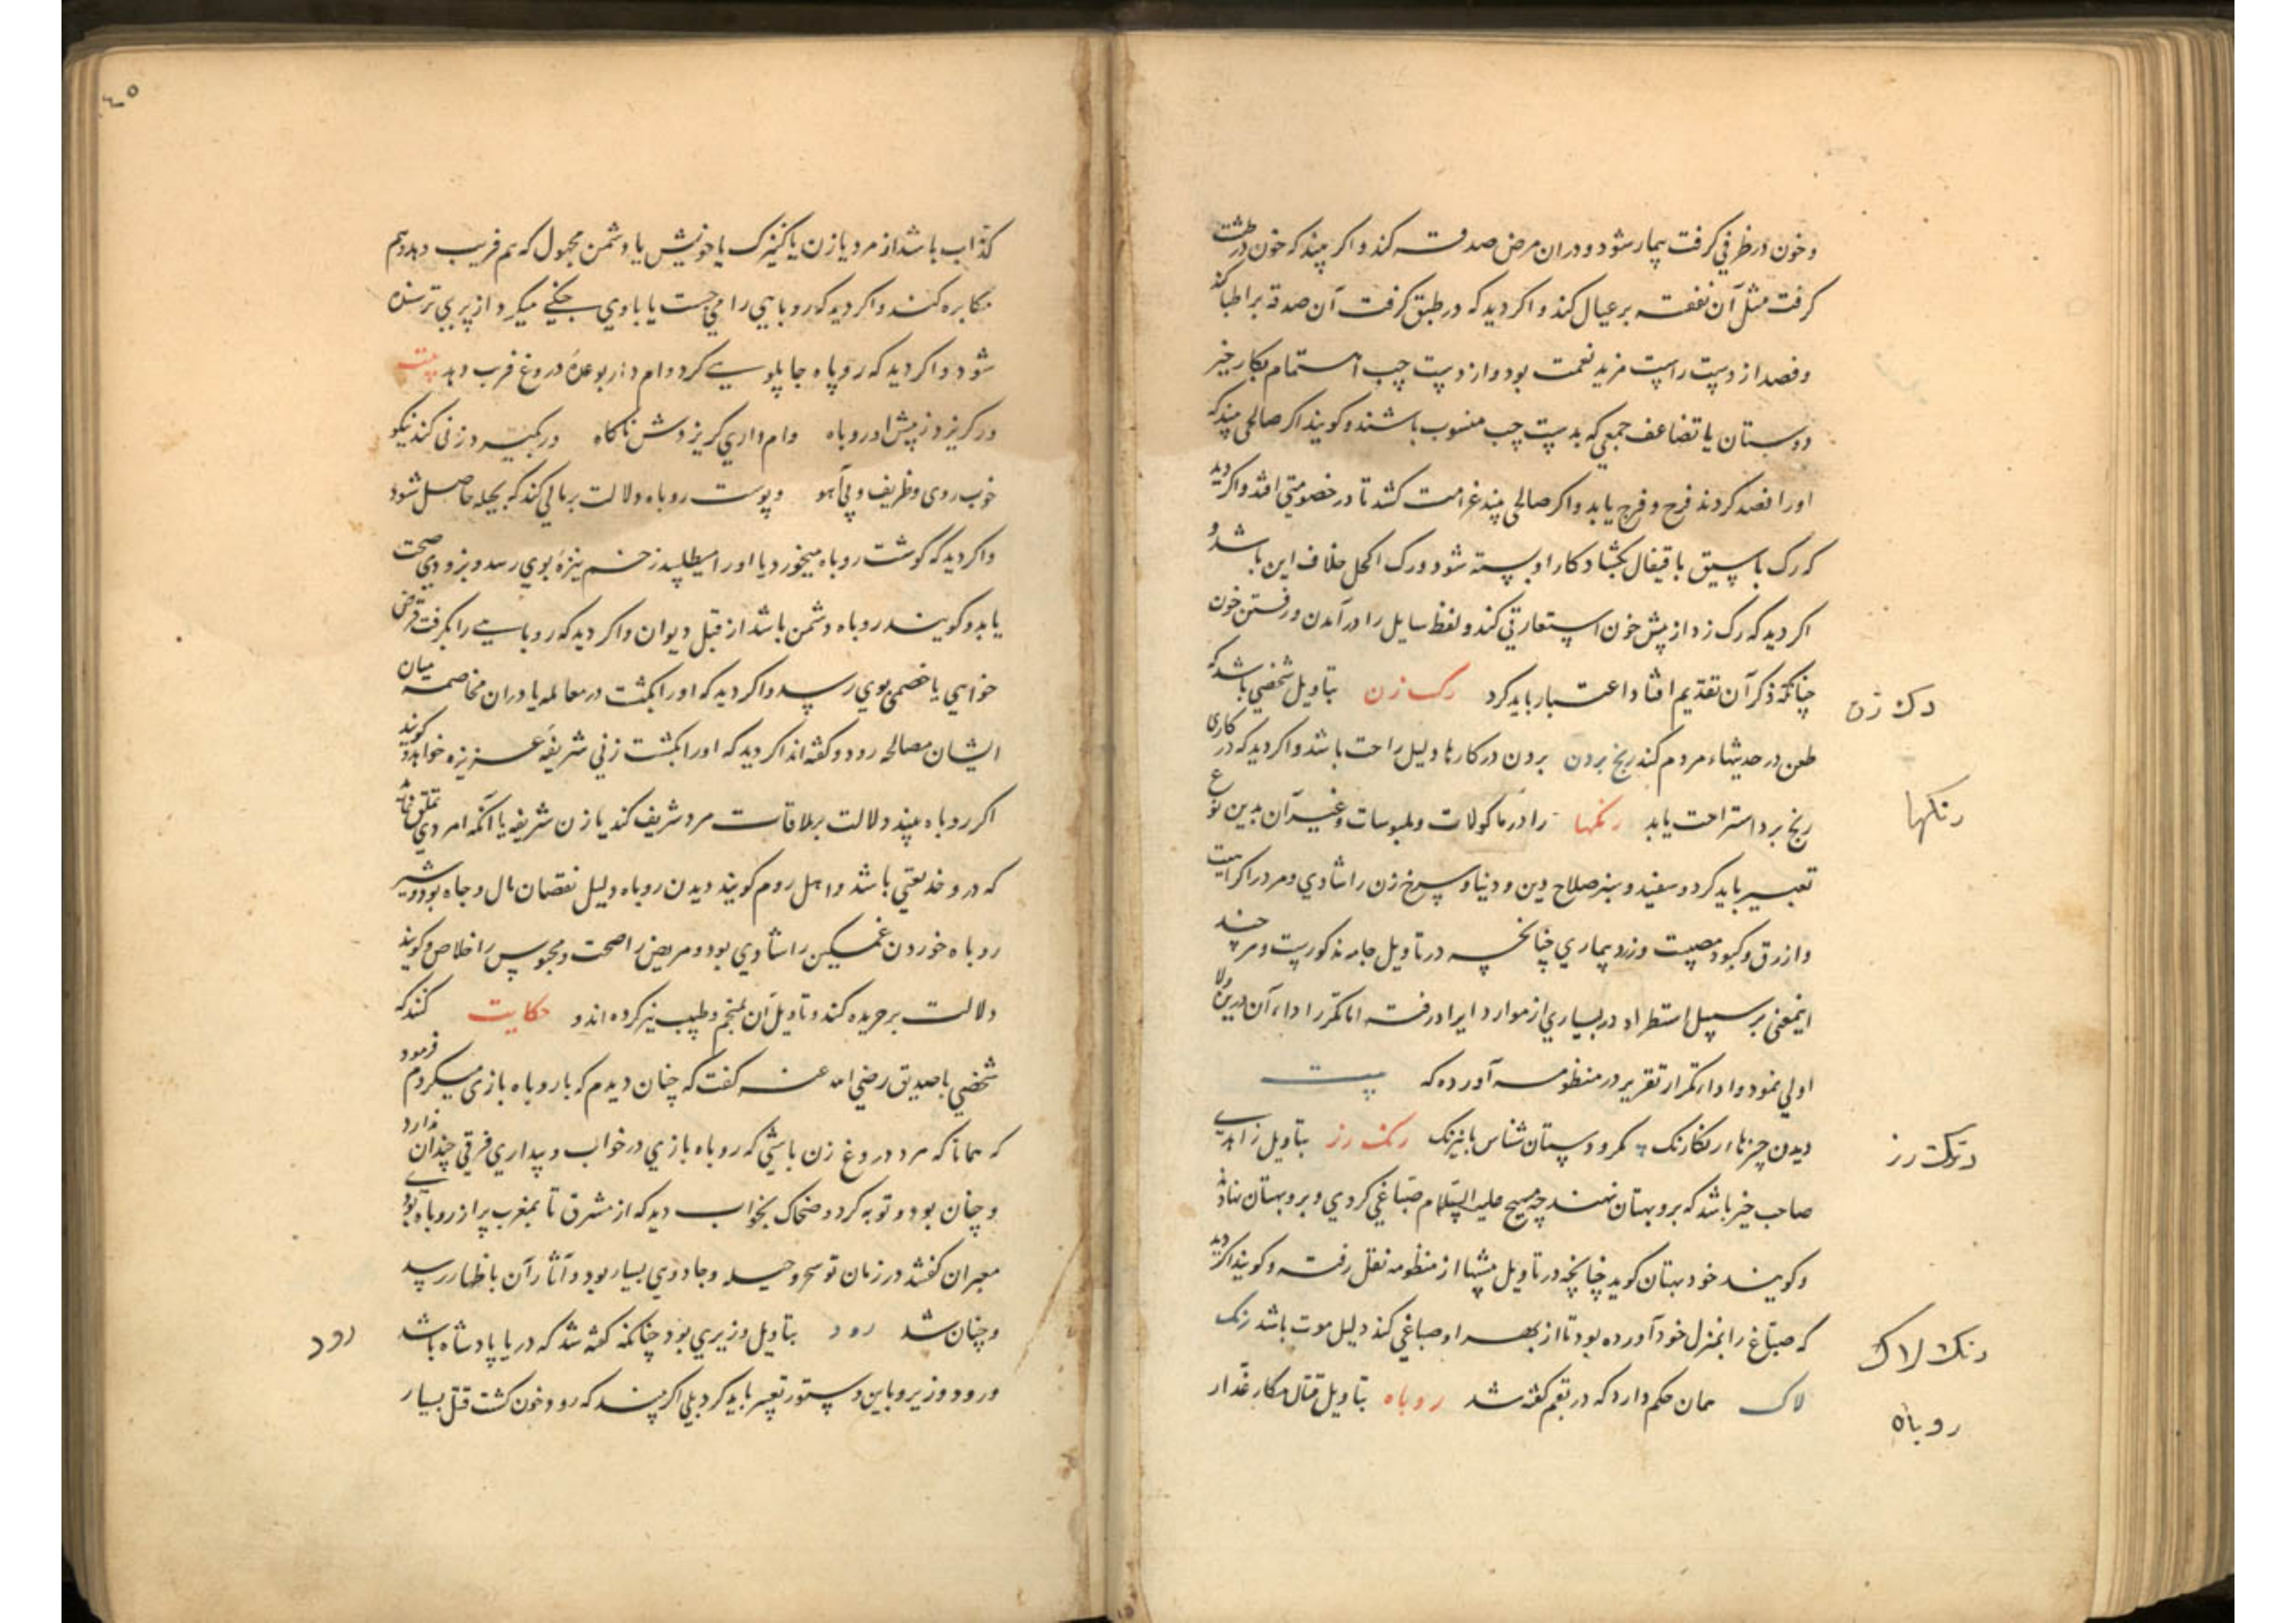 و خون در ظرفی گرفت بیمار شود و در ان مرض صدقه کند و اکر بیند که خون در طشت
گرفت مثل آن نفقه بر عیال کند و اکر دید که در طبق گرفت آن صدقه بر اطبا کند
و فصد از دست راست مزید نعمت بود و از دست چپ اهتمام بکار خیر
دوستان یا تضاعف جمعی که بدست چپ منسوب باشند و کویند اکر صالحی بیند که
او را فصد کردند فرح و فرج یابد و اکر صالحی بیند غرامت کشد تا در خصومتی افتد و اکر دید
که رک باسیلق یا قیفال بکشاد کار او بسته شود و رک اکحل خلاف این باشد و
اکر دید که رک زد از پیش خون استعارتی کند و لفظ سایل را در آمدن و رفتن خون
چنانکه ذکر آن تقدیم افتاد اعتبار باید کرد رک زن بتاویل شخصی باشد که
رک زن
طعن در حدیثهاء مردم کند رنج بردن بردن در کارها دلیل راحت باشد و اکر دید که در کاری
رنج برد استراحت یابد رنکها را در ماکولات و ملبوسات و غیر آن بدین نوع
رنکها
تعبیر باید کرد و سفید و سبز صلاح دین و دنیا و سرخ زن را شادی و مرد را کراهیت
و ازرق و کبود مصیبت و زرد بیماری چنانچه در تاویل جامه مذکورست و هر چند
اینمعنی بر سبیل استطراد در بسیاری از موارد ایراد رفته اما مکرر اداء آن درین ولا
اولی نمود و اداء مکرار تقریر در منظومه آورده که بیت
دیدن چیزها رنکارنک مکر و دستان شناس با نیرنک رنک رز بتاویل زاهدی
رنک رز
صاحب خیر باشد که برو بهتان نهند چه مسیح علیه السلام صباغی کردی و برو بهتان نهادند
و کویند خود بهتان کوید چنانچه در تاویل پیشها از منظومه نقل رفته و کویند اکر دید
که صباغ را بمنزل خود آورده بود تا از بهر او صباغی کند دلیل موت باشد رنک
رنک لاک
لاک همان حکم دارد که در بقم کفته شد روباه بتاویل قتال مکار غدار
روباه
٤٥
کذاب باشد از مرد یا زن یا کنیزک یا خویش یا دشمن مجهول که هم فریب دهد و هم
مکابره کند و اکر دید که روباهی را می جست یا با وی جنکی میکرد از پری ترسنده
شود و اکر دید که روباه چاپلوسی کرد وام دار بوعده دروغ فریب دهد بیت
ور کریزد ز پیش او روباه وام داری کریزدش ناکاه در بکیرد زنی کند نیکو
خوب روی و ظریف و بی آهو و پوست روباه دلالت بر مالی کند که بحیله حاصل شود
و اکر دید که کوشت روباه میخورد یا او را میطلبید زخم نیزه بوی رسد و بزودی صحت
یابد و کویند روباه دشمن باشد از قبل دیوان و اکر دید که روباهی را بکرفت قرض
خواهی یا خصمی بوی رسد و اکر دید که او را بکشت در معامله یا در ان مخاصمه میان
ایشان مصالحه رود و کفته اند اکر دید که او را بکشت زنی شریفه عزیزه خواهد و کویند
اکر روباه بیند دلالت بر ملاقات مرد شریف کند یا زن شریفه یا آنکه امردی تملق نماید
که در و خدیعتی باشد و اهل روم کویند دیدن روباه دلیل نقصان مال و جاه بود و شیر
روباه خوردن غمکین را شادی بود و مریض را صحت و محبوس را خلاص و کویند
دلالت بر حریده کند و تاویل آن بمنجم و طبیب نیز کرده اند و حکایت کنند که
شخصی با صدیق رضی الله عنه کفت که چنان دیدم که با روباه بازی میکردم فرمود
که همانا که مرد دروغ زن باشی که روباه بازی در خواب و بیداری فرقی چندان ندارد
و چنان بود و توبه کرد و ضحاک بخواب دید که از مشرق تا بمغرب پر از روباه بودی
معبران کفتند در زمان تو سحر و حیله و جادوی بسیار بود و آثار آن باظهار رسید
و چنان شد رود بتاویل وزیری بود چنانکه کفته شد که دریا پادشاه باشد
رود
و رود وزیر و باین دستور تعبیر باید کرد بلی اکر بیند که رود خون کشت قتل بسیار